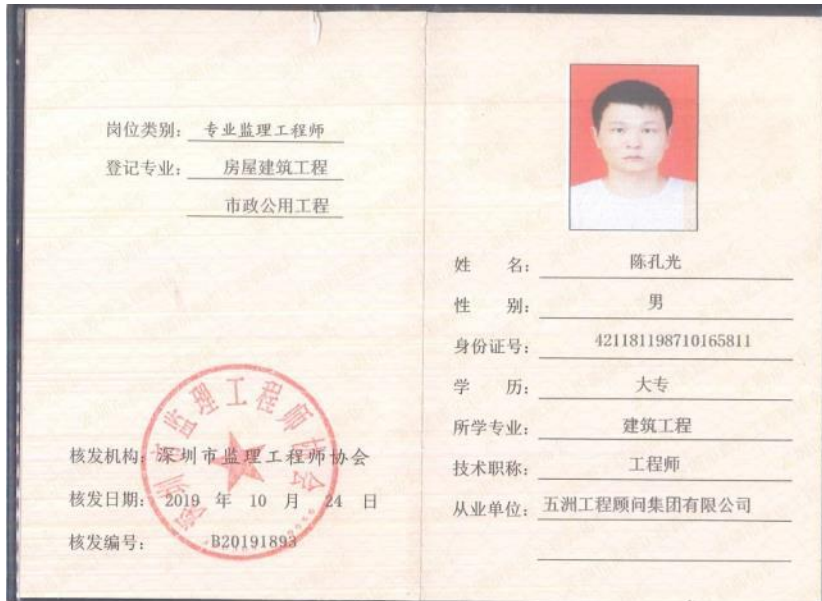 岗位类别： 专业监理工程师
登记专业： 房屋建筑工程
市政公用工程
深圳市监理工程师协会
核发机构：深圳市监理工程师协会
核发日期：2019 年 10 月 24 日
核发编号： B20191893
姓 名： 陈孔光
性 别： 男
身份证号： 421181198710165811
学 历： 大专
所学专业： 建筑工程
技术职称： 工程师
从业单位： 五洲工程顾问集团有限公司